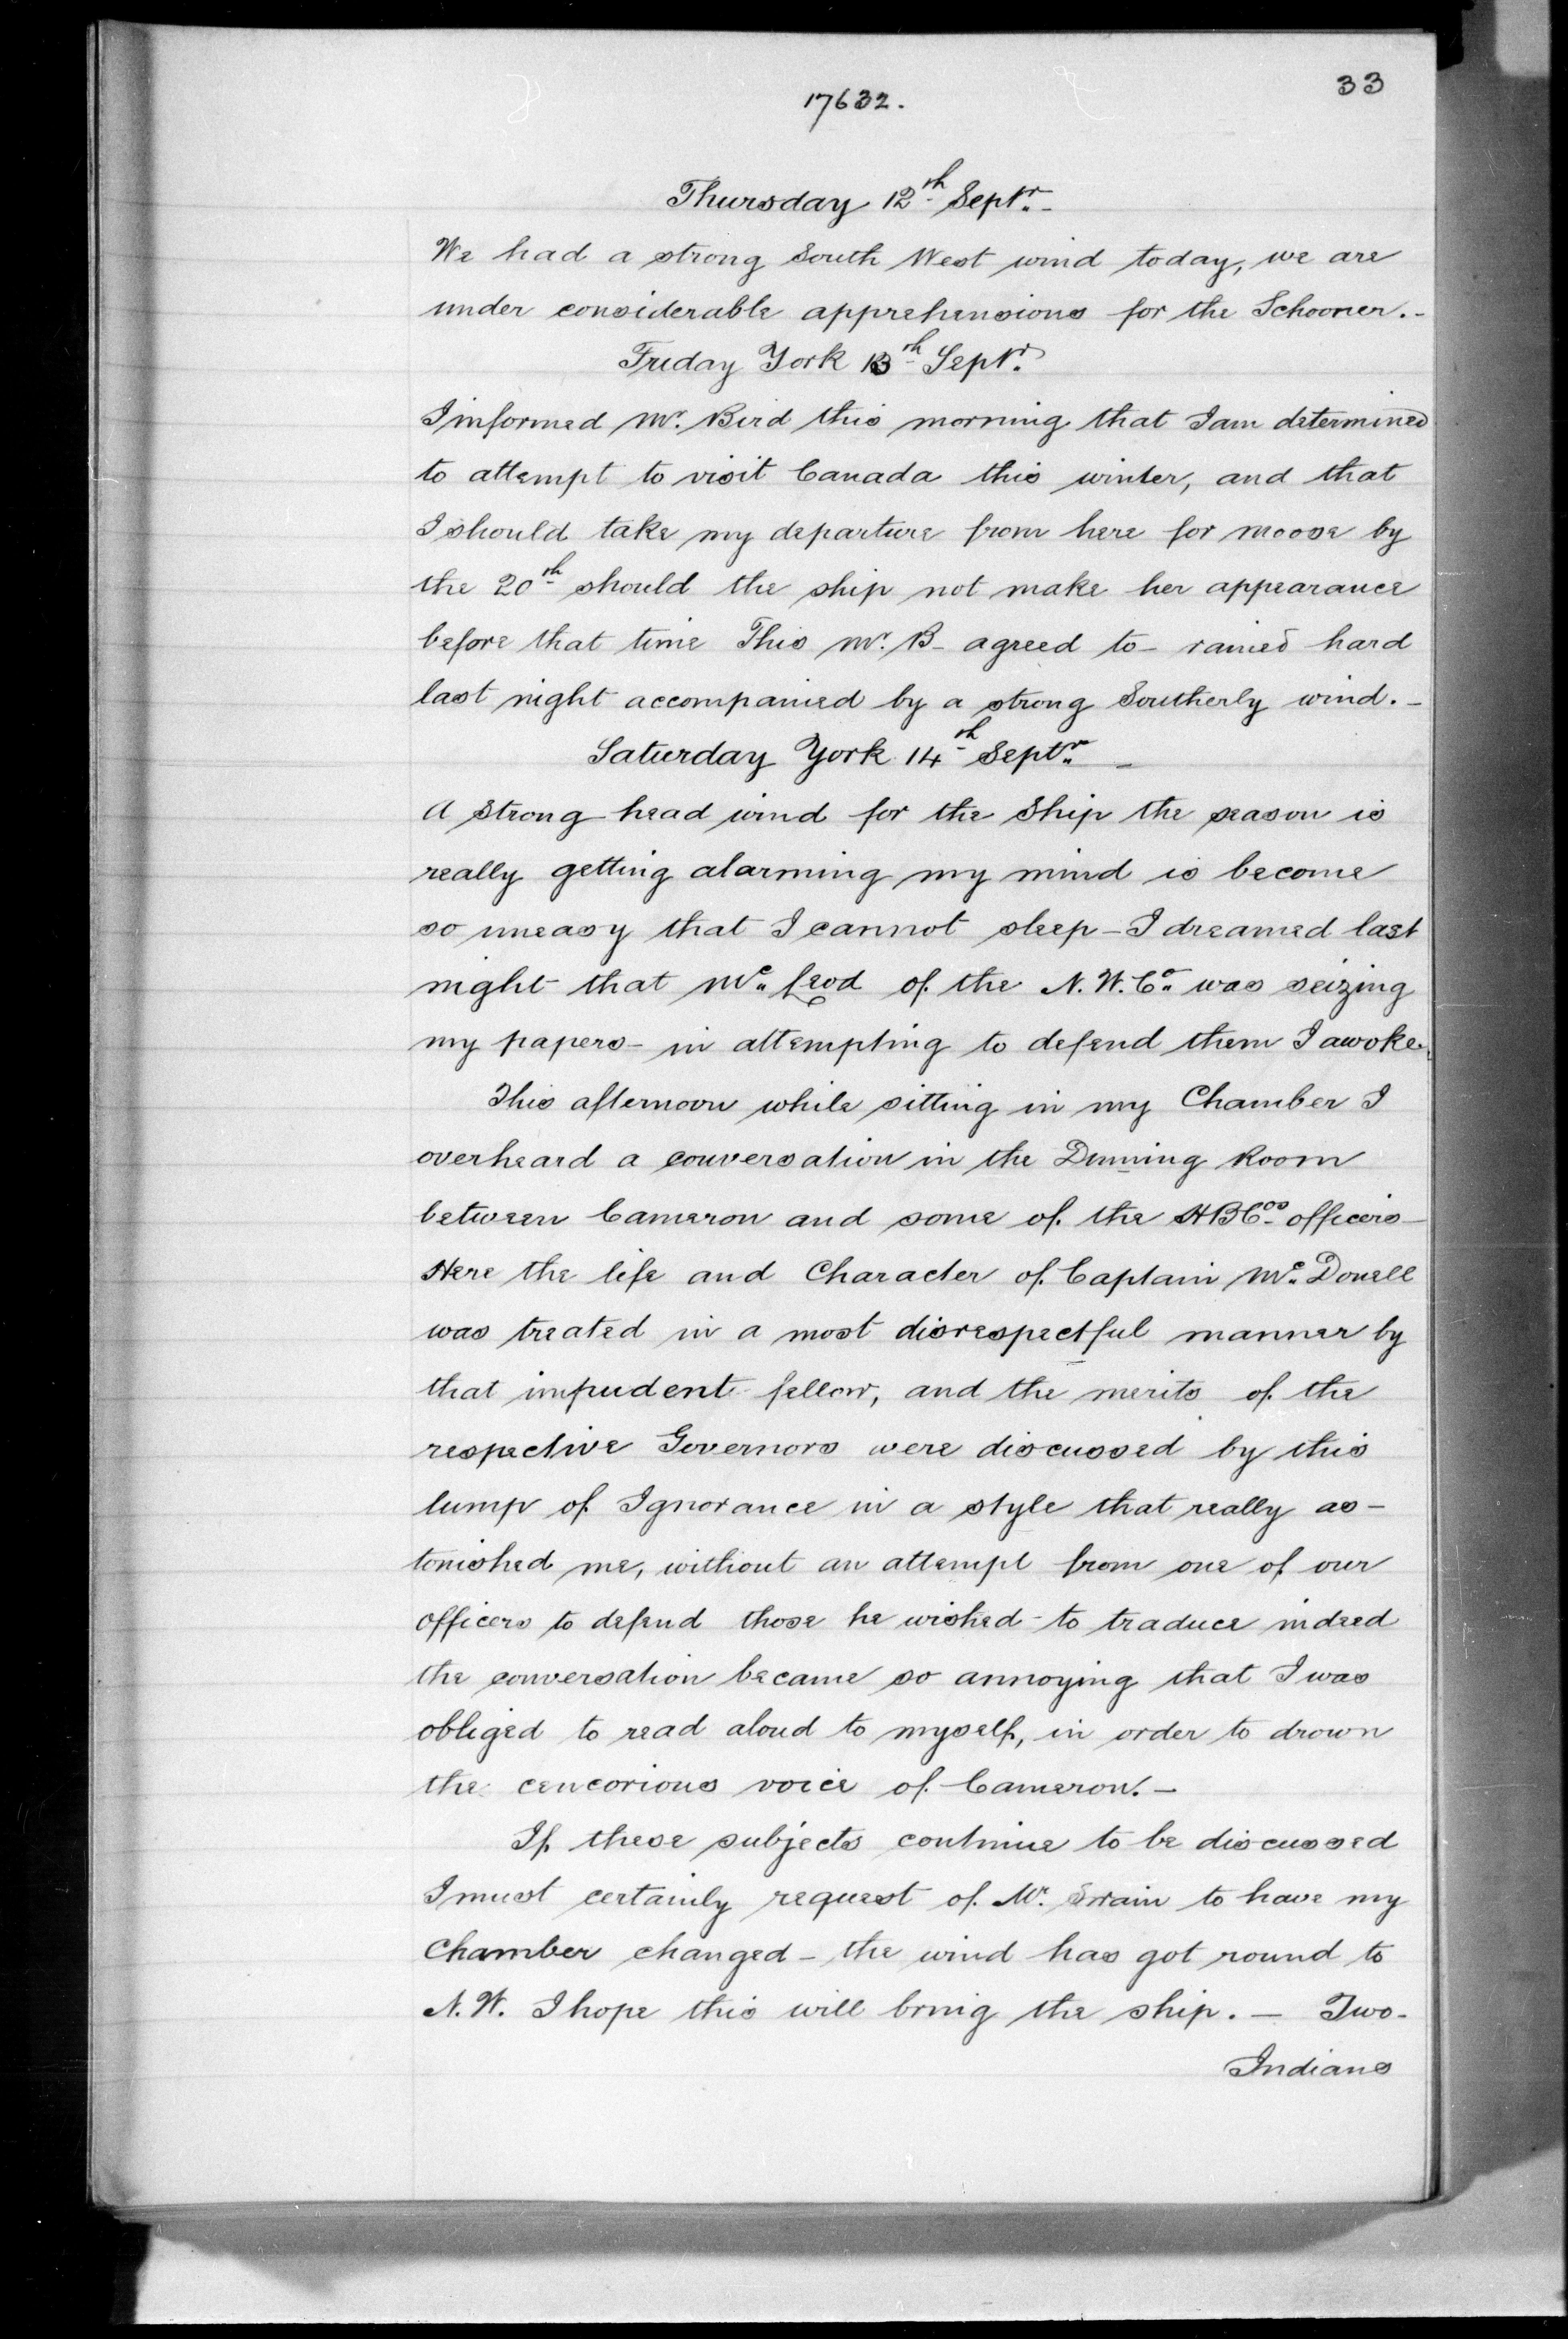 33
17632.
Thursday 12th Septr.-
We had a strong South West wind today, we are
under considerable apprehensions for the Schooner.-
Friday York 13th Septr.
I informed Mr. Bird this morning that I am determined
to attempt to visit Canada this winter, and that
I should take my departure from here for moose by
the 20th should the ship not make her appearance
before that time This Mr. B- agreed to- rained hard
last night accompanied by a strong Southerly wind.-
Saturday York 14th Septr. -
A strong head wind for the Ship the season is
really getting alarming my mind is become
so uneasy that I cannot sleep - I dreamed last
night that Mc. Leod of the N.W.Co. was seizing
my papers - in attempting to defend them I awoke.
This afternoon while sitting in my Chamber I
overheard a conversation in the Dinning Room
between Cameron and some of the HBCos officers-
Here the life and Character of Captain Mc. Donell
was treated in a most disrespectful manner by
that impudent fellow, and the merits of the
respective Governors were discussed by this
lump of Ignorance in a style that really as-
tonished me, without an attempt from one of our
officers to defend those he wished to traduce indeed
the conversation became so annoying that I was
obliged to read aloud to myself, in order to drown
the cencorious voice of Cameron.-
If these subjects continue to be discussed
I must certainly request of Mr. Swain to have my
Chamber changed - the wind has got round to
N.W. I hope this will bring the ship. - Two-
Indians